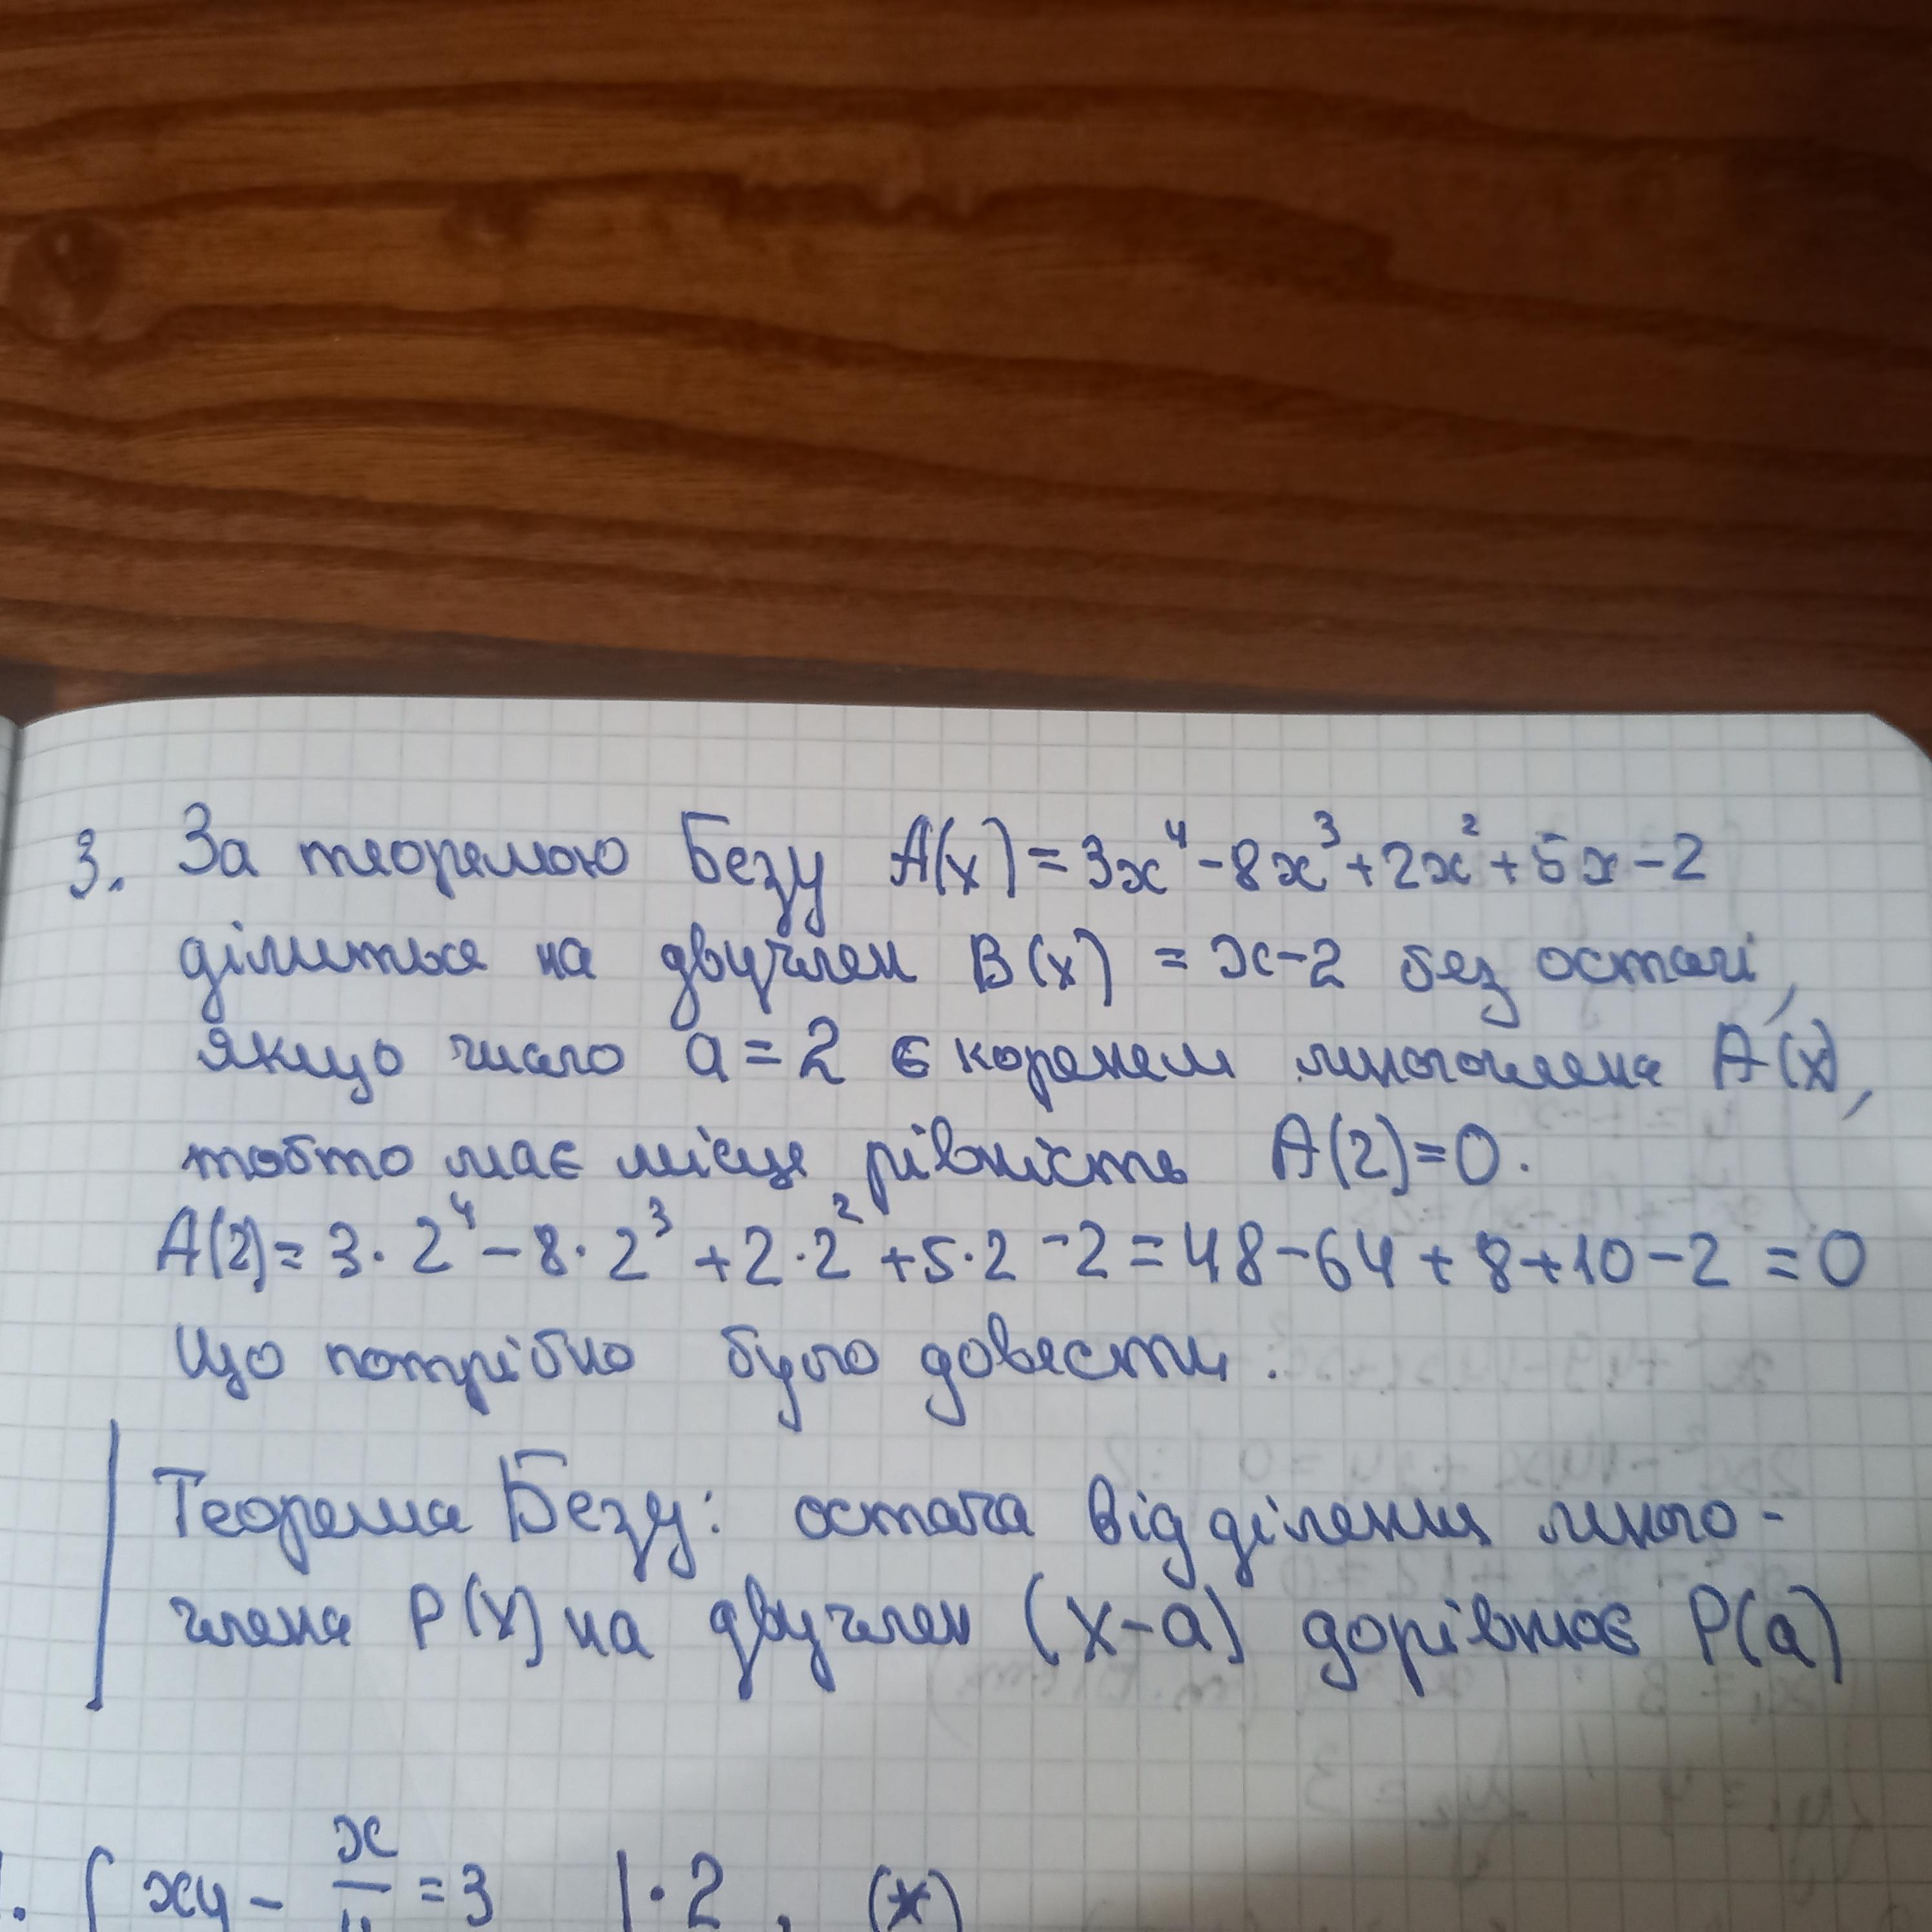 3. За теоремою Безу A(x) = 3x⁴ - 8x³ + 2x² + 5x - 2
ділиться на двучлен B(x) = x - 2 без остачі,
якщо число a = 2 є коренем многочлена A(x),
тобто має місце рівність A(2) = 0.
A(2) = 3 · 2⁴ - 8 · 2³ + 2 · 2² + 5 · 2 - 2 = 48 - 64 + 8 + 10 - 2 = 0
Що потрібно було довести.
Теорема Безу: остача від ділення много-
члена P(x) на двучлен (x - a) дорівнює P(a)
xy - x = 3 | · 2 , (x)